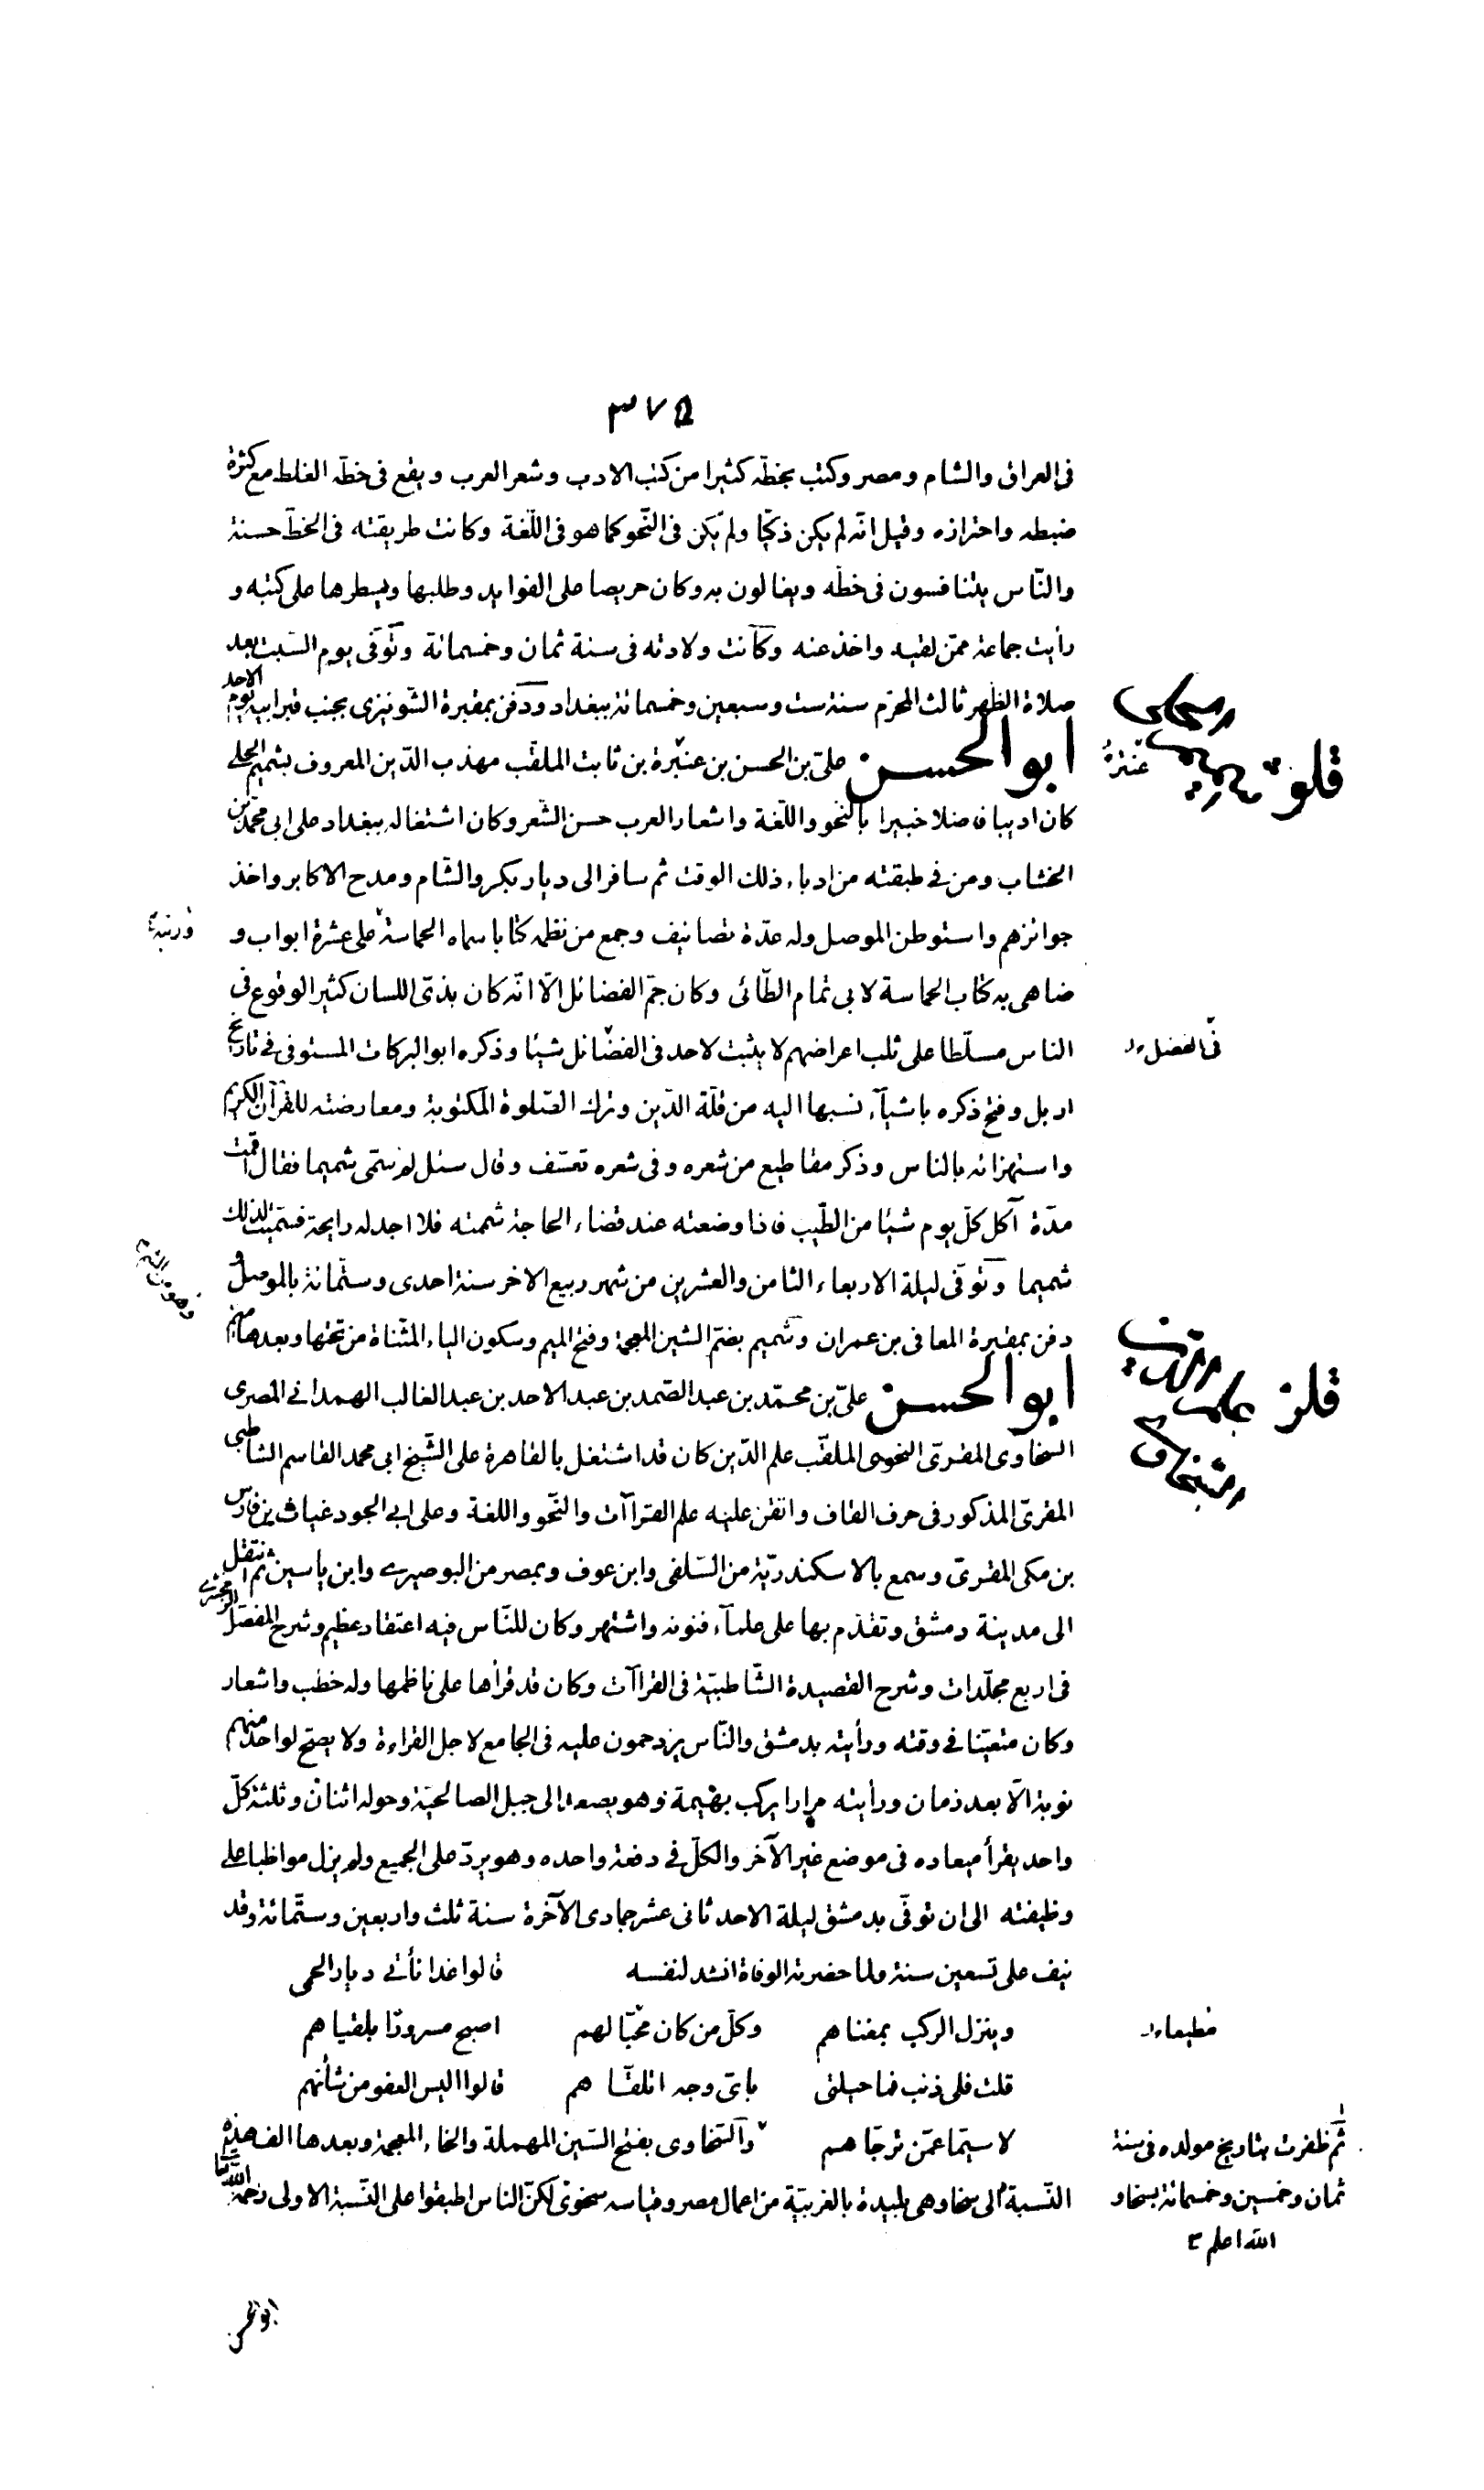 ٣٧٥
فى العراق والشام ومصر وكتب بخطّه كثيرا من كتب الادب وشعر العرب ويقع فى خطّه الغلط مع كثرة
ضبطه واحترازه وقيل انّه لم يكن ذكيّا ولم يكن فى النّحو كما هو فى اللّغة وكانت طريقته فى الخطّ حسنة
والنّاس يتنافسون فى خطّه ويغالون به وكان حريصا على الفوايد وطلبها ويسطرها على كتبه و
رأيت جماعة ممّن لقيه واخذ عنه وكانت ولادته فى سنة ثمان وخمسمائة وتوفّى يوم السّبت بعد
صلاة الظّهر ثالث المحرّم سنة ست وسبعين وخمسمائة ببغداد ودفن بمقبرة الشّونيزى بجنب قبر ابيه يوم الاحد
ابو الحسن علىّ بن الحسن بن عنتّرة بن ثابت الملقّب مهذب الدّين المعروف بشميم الحلى
عنترة
كان اديبا فاضلا خبيرا بالنّحو واللّغة واشعار العرب حسن الشّعر وكان اشتغاله ببغداد على ابى محمّد بن
الخشاب ومن فى طبقته من ادباء ذلك الوقت ثم سافر الى ديار بكر والشّام ومدح الاكابر واخذ
جوائزهم واستوطن الموصل وله عدّة تصانيف وجمع من نظمه كتابا سماه الحماسة على عشرة ابواب و
ضاهى به كتاب الحماسة لابى تمام الطّائى وكان جمّ الفضائل الّا انّه كان بذىّ اللسان كثير الوقوع فى
الناس مسلّطا على ثلب اعراضهم لا يثبت لاحد فى الفضائل شيئا وذكره ابو البركات المستوفى فى تاريخ
فى الفضل
اربل وفتح ذكره باشيآء نسبها اليه من قلّة الدّين وترك الصّلوة المكتوبة ومعارضته للقرآن الكريم
واستهزائه بالناس وذكر مقاطيع من شعره وفى شعره تعسّف وقال سئل لم سمّى شميما فقال اقمت
مدّة آكل كلّ يوم شيئا من الطّيب فاذا وضعته عند قضاء الحاجة شممته فلا اجد له رايحة فسمّيت لذلك
شميما وتوفّى ليلة الاربعاء الثامن والعشرين من شهر ربيع الاخر سنة احدى وستّمائة بالموصل و
دفن بمقبرة المعافى بن عمران وشميم بضمّ الشين المعجمة وفتح الميم وسكون الياء المثّناة من تحتها وبعدها ميم
ابو الحسن علىّ بن محمّد بن عبد الصّمد بن عبد الاحد بن عبد الغالب الهمدانى المصرى
السخاوى المقرئ النحوى الملقّب علم الدّين كان قد اشتغل بالقاهرة على الشّيخ ابى محمد القاسم الشاطبى
المقرئ المذكور فى حرف القاف واتقن عليه علم القراآت والنّحو واللغة وعلى ابى الجود غياث بن فارس
بن مكى المقرئ وسمع بالاسكندريّة من السّلفى وابن عوف وبمصر من البوصيرى وابن ياسين ثم انتقل
الى مدينة دمشق وتقدّم بها على علمآء فنونه واشتهر وكان للنّاس فيه اعتقاد عظيم وشرح المفصّل الزمخشرى
فى اربع مجلّدات وشرح القصيدة الشّاطبيّة فى القراآت وكان قد قرأها على ناظمها وله خطب واشعار
وكان متعيّنا فى وقته ورأيته بدمشق والنّاس يزدحمون عليه فى الجامع لاجل القراءة ولا يصحّ لواحد منهم
نوبة الّا بعد زمان ورأيته مرارا يركب بهيمة وهو يصعد الى جبل الصالحيّة وحوله اثنان وثلثة كلّ
واحد يقرأ ميعاده فى موضع غير الآخر والكلّ فى دفعة واحده وهو يردّ على الجميع ولم يزل مواظبا على
وظيفته الى ان توفّى بدمشق ليلة الاحد ثانى عشر جمادى الآخرة سنة ثلث واربعين وستّمائة وقد
نيف على تسعين سنة ولما حضرته الوفاة انشد لنفسه قالوا غدا نأتى ديار الحمى
وينزل الركب بمغناهم وكلّ من كان محبّا لهم اصبح مسرورًا بلقياهم
قلت فلى ذنب فما حيلتى باىّ وجه اتلقّاهم قالوا اليس العفو من شأنهم
لا سيّما عمّن ترجّاهم والسّخاوى بفتح السّين المهملة والخاء المعجمة وبعدها الف هذه
النّسبة الى سخا وهى بليدة بالغربيّة من اعمال مصر وقياسه سخوىّ لكنّ الناس اطبقوا على النّسبة الاولى
ثمّ ظفرت بتاريخ مولده فى سنة
ثمان وخمسين وخمسمائة بسخا و
الله اعلم